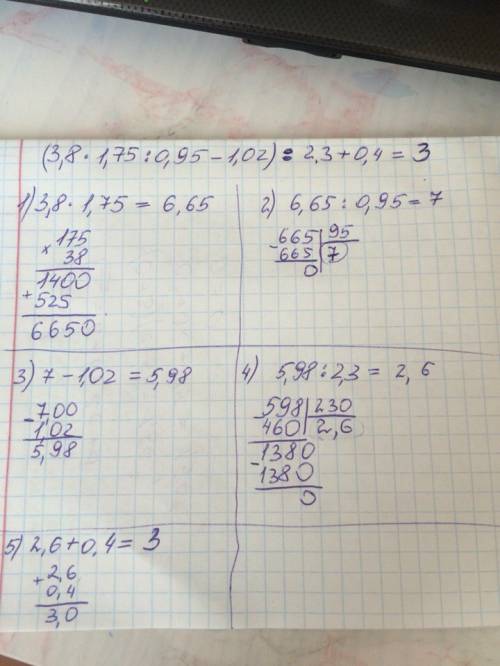 (3,8 · 1,75 : 0,95 - 1,02) : 2,3 + 0,4 = 3
1) 3,8 · 1,75 = 6,65
× 175
38
1400
+ 525
6650
2) 6,65 : 0,95 = 7
- 665 | 95
665 | 7
0
3) 7 - 1,02 = 5,98
- 7,00
1,02
5,98
4) 5,98 : 2,3 = 2,6
- 598 | 230
460 | 2,6
- 1380
1380
0
5) 2,6 + 0,4 = 3
+ 2,6
0,4
3,0